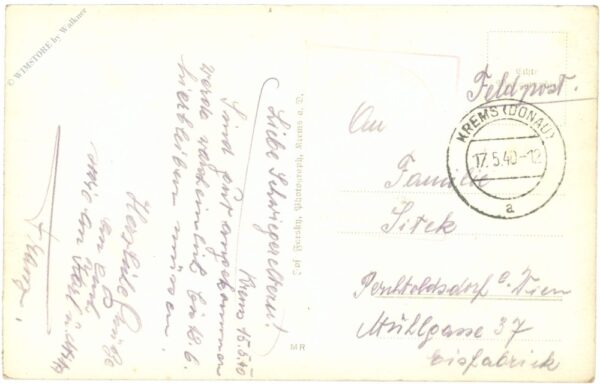 © WIMSTORE by Walkner
Krems 15.5.40
Liebe Schwiegereltern!
Sind gut angekommen
werde wahrscheinlich bis 28.6.
hierbleiben müssen.
Herzliche Grüße
an Euch
Franz.
Jos. Forsky, Photograph, Krems a. D.
MR
Feldpost.
KREMS (DONAU)
17.5.40-12
a
An
Familie
Sitek
Perchtoldsdorf b. Wien
Mühlgasse 37
Eisfabrick